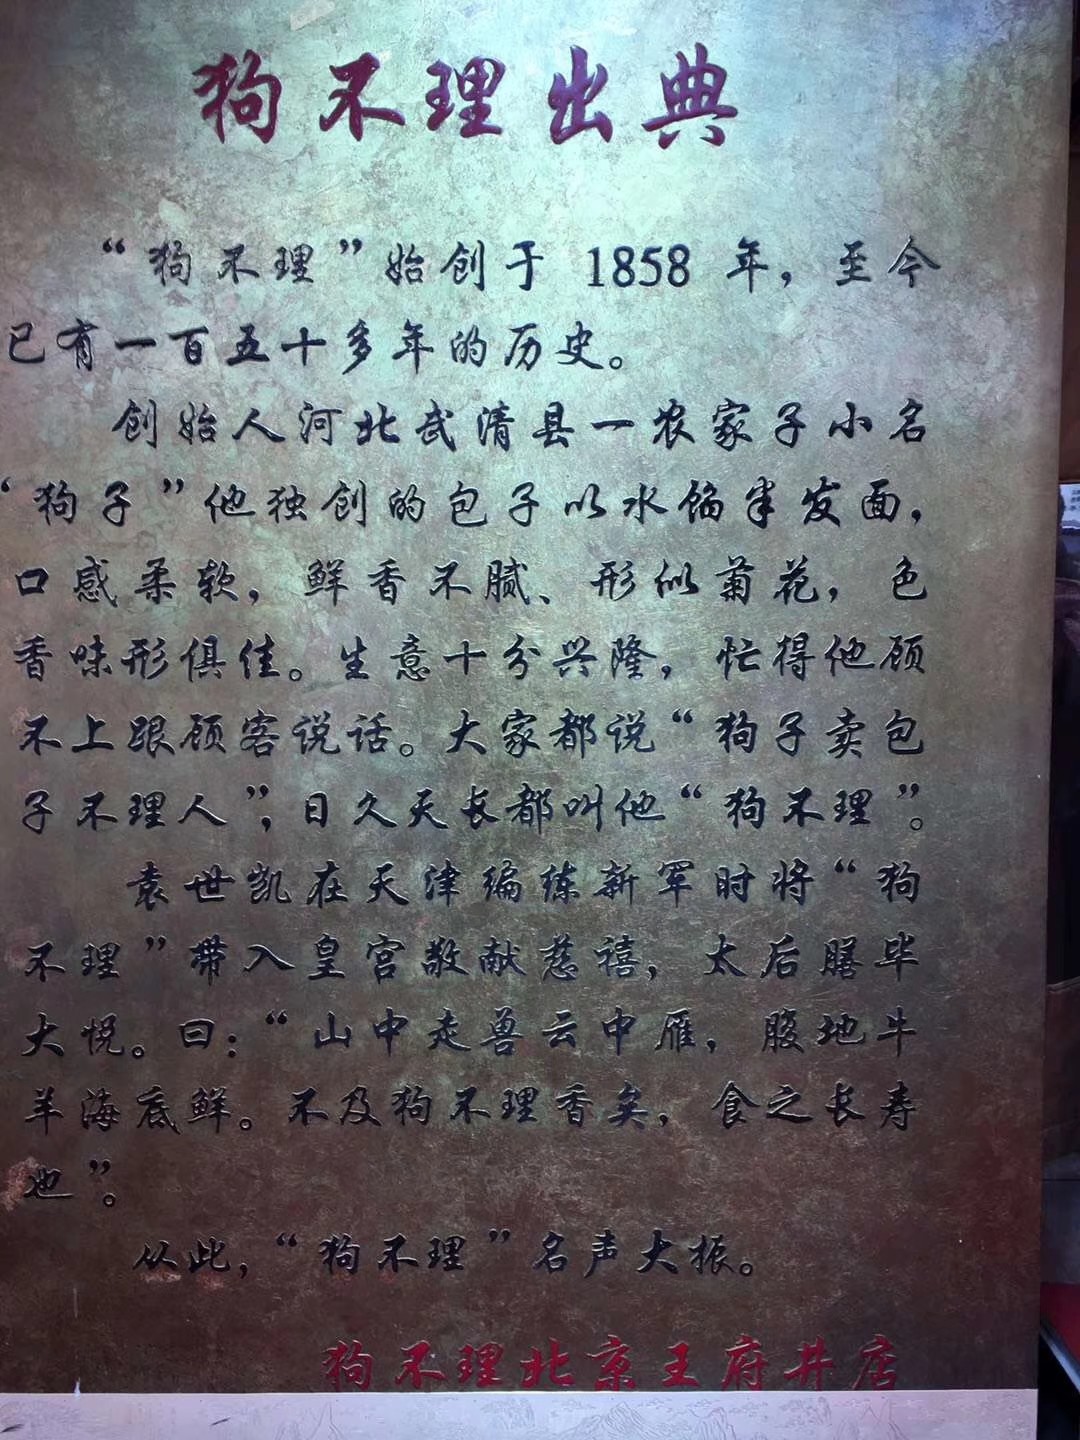 狗不理出典
“狗不理”始创于 1858 年，至今
已有一百五十多年的历史。
创始人河北武清县一农家子小名
‘狗子”他独创的包子以水馅半发面，
口感柔软，鲜香不腻、形似菊花，色
香味形俱佳。生意十分兴隆，忙得他顾
不上跟顾客说话。大家都说“狗子卖包
子不理人”，日久天长都叫他“狗不理”。
袁世凯在天津编练新军时将“狗
不理”带入皇宫敬献慈禧，太后膳毕
大悦。曰：“山中走兽云中雁，腹地牛
羊海底鲜。不及狗不理香矣，食之长寿
也”。
从此，“狗不理”名声大振。
狗不理北京王府井店